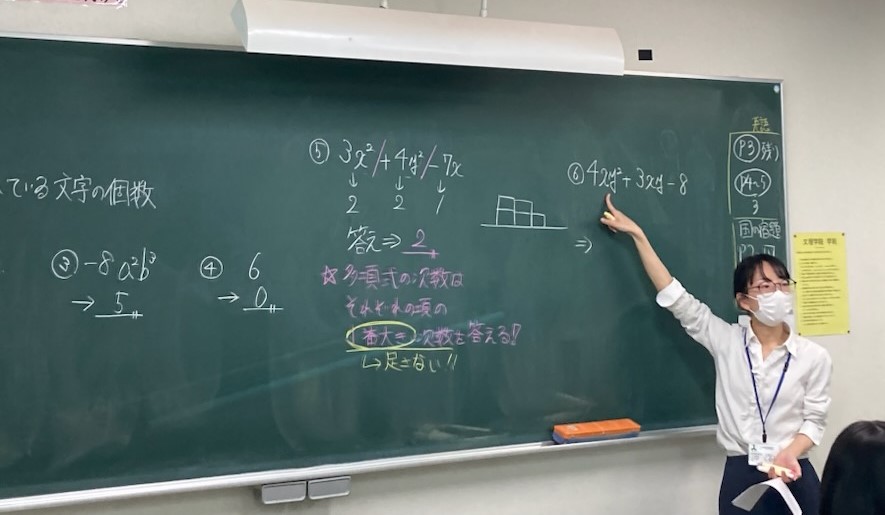 ている文字の個数
③ -8a²b³
→ 5
④ 6
→ 0
⑤ 3x²/+4y²/-7x
↓ ↓ ↓
2 2 1
答え⇒ 2
☆多項式の次数は
それぞれの項の
1番大きい次数を答える!!
↳足さない!!
⑥ 4xy²+3xy-8
⇒
P3)残り
P4~5
3
国の宿題
文理学院 学則